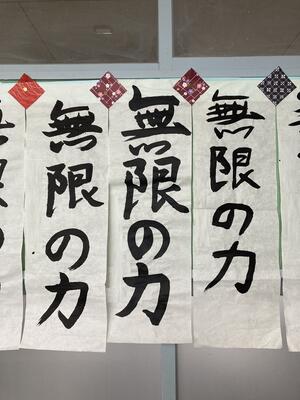 無限の力
無限の力
無限の力